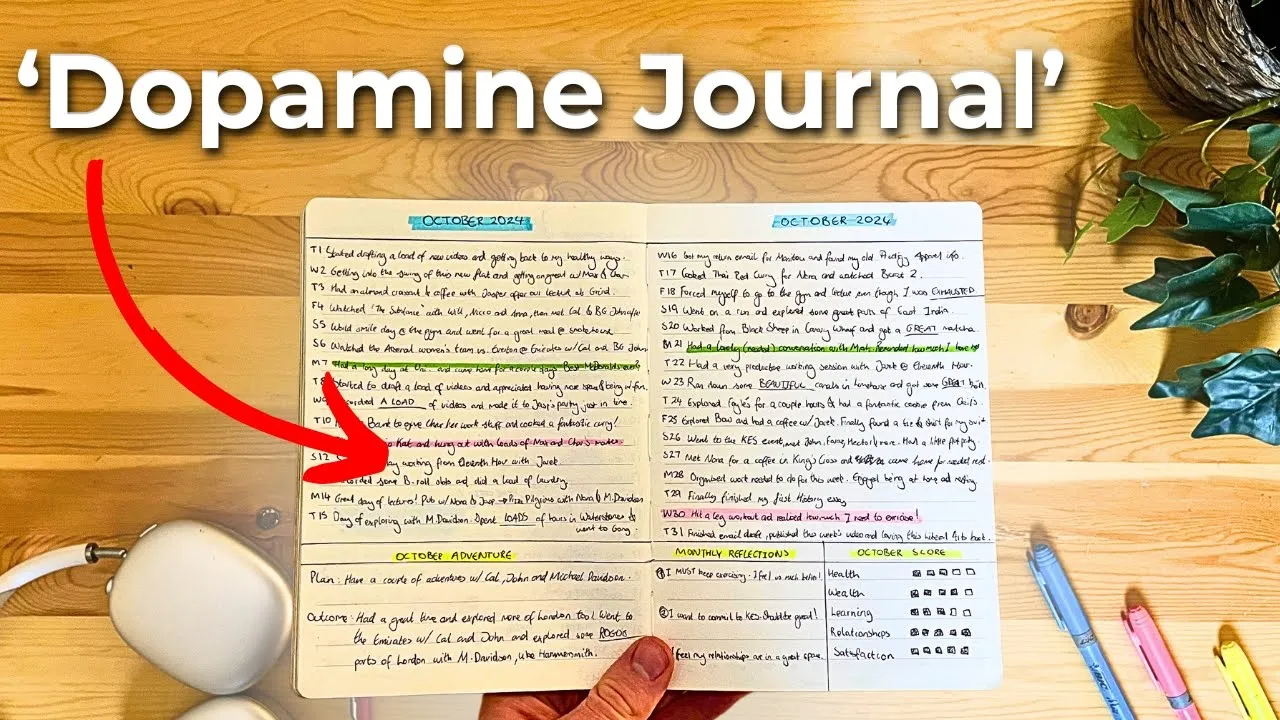 ‘Dopamine Journal’
OCTOBER 2024
T1 Started drafting a load of new videos and getting back to my healthy ways.
W2 Getting into the swing of this new flat and getting on great w/ Max & Char
T3 Had an almond croissant & coffee with Jasper after our lecture at Grind.
F4 Watched 'The Substance' with Will, Nicco and Anna, then met Cal & BG John after
S5 World smile day @ the gym and went for a great meal @
S6 Watched the Arsenal women's team vs. Everton @ Emirates w/ Cal and BG John
M7 Had a long day at Uni and came home for a
Started to draft a load of videos and appreciated having new
A LOAD of videos and made it to party just in time.
T10 to give Char her work stuff and cooked a fantastic curry!
Kat and hung out with loads of Max and Char's mates
S12 day working from Eleventh Hour with Jack.
some B-roll and did a load of laundry.
M14 Great day of lectures! Pub w/ Nora & Jasp → Pizza Pilgrims with Nora & M. Davidson
T15 Day of exploring with M. Davidson. Spent LOADS of hours in Waterstones &
went to Gong.
OCTOBER ADVENTURE
Plan: Have a couple of adventures w/ Cal, John and Michael Davidson.
Outcome: Had a great time and explored more of London too! Went to
the Emirates w/ Cal and John and explored some
parts of London with M. Davidson, like Hammersmith.
OCTOBER 2024
W16 Got my return email for and found my old Apparel info.
T17 Cooked Thai Red Curry for Nora and watched Borat 2.
F18 Forced myself to go to the gym and lecture even though I was EXHAUSTED.
S19 Went on a run and explored some great parts of East India.
S20 Worked from Black Sheep in Canary Wharf and got a GREAT matcha.
M21 Had a lovely (needed) conversation with Mat. Remembered how much I love
T22 Had a very productive working session with Jack @ Eleventh Hour.
W23 Ran down some BEAUTIFUL canals in Limehouse and got some GREAT
T24 Explored Foyles for a couple hours & had a fantastic cookie from Gail's.
F25 Explored Boxo and had a coffee w/ Jack. Finally found a tie & shirt for my suit
S26 Went to the KES event, met John, Fares, Hector & more. Had a little
S27 Met Nora for a coffee in King's Cross and came home for needed rest.
M28 Organised work needed to do this week. Enjoyed being at home and resting.
T29 Finally finished my first History essay
W30 Hit a leg workout and realised how much I need to exercise!
T31 Finished email draft, published this week's video and loving this
MONTHLY REFLECTIONS
① I MUST keep exercising. I feel so much better!
② I want to commit to KES. Should be great!
I feel my relationships are in a great space.
OCTOBER SCORE
Health
Wealth
Learning
Relationships
Satisfaction